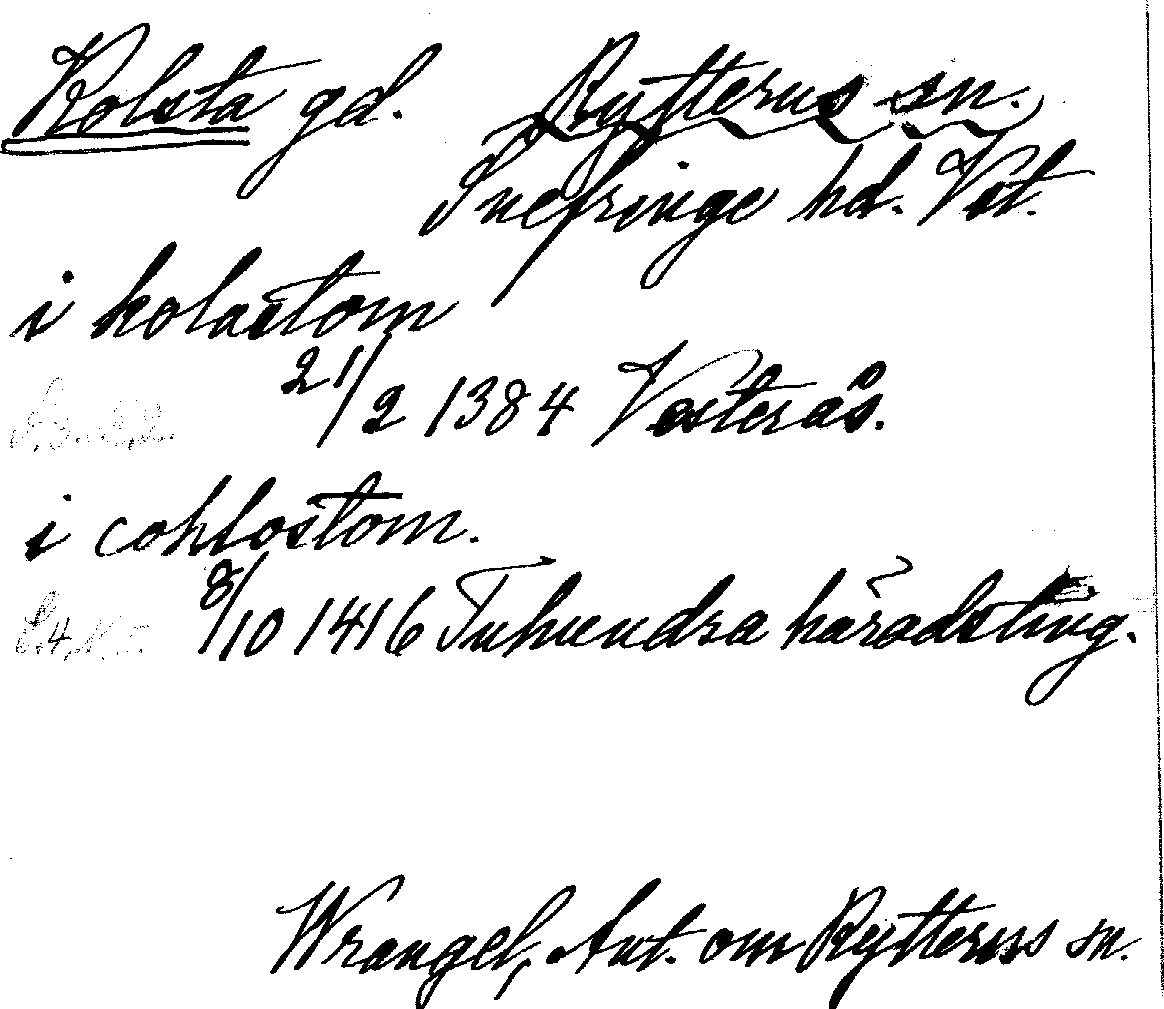 Kolsta gd. Rytterus sn.
Snefringe hd. Vst.
i kolastom
21/2 1384 Vesterås.
i cohlostom.
8/10 1416 Tuhundra häradsting.
Wrangel, Ant. om Rytterus sn.